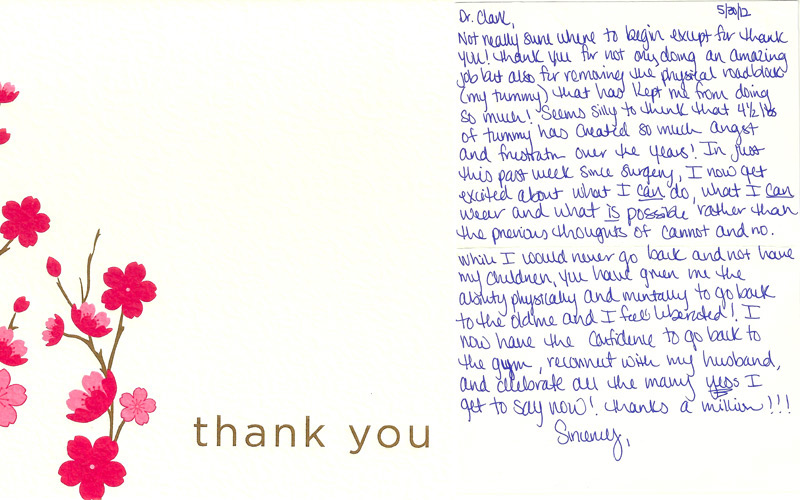 thank you
5/30/12
Dr. Clark,
Not really sure where to begin except for thank
you! Thank you for not only doing an amazing
job but also for removing the physical roadblock
(my tummy) that has kept me from doing
so much! Seems silly to think that 4 1/2 lbs
of tummy has created so much angst
and frustratn over the years! In just
this past week since surgery, I now get
excited about what I can do, what I can
wear and what is possible rather than
the previous thoughts of cannot and no.
While I would never go back and not have
my children, you have given me the
ability physically and mentally to go back
to the old me and I feel liberated! I
now have the confidence to go back to
the gym, reconnect with my husband,
and celebrate all the many yes's I
get to say now! Thanks a million!!!
Sincerely,